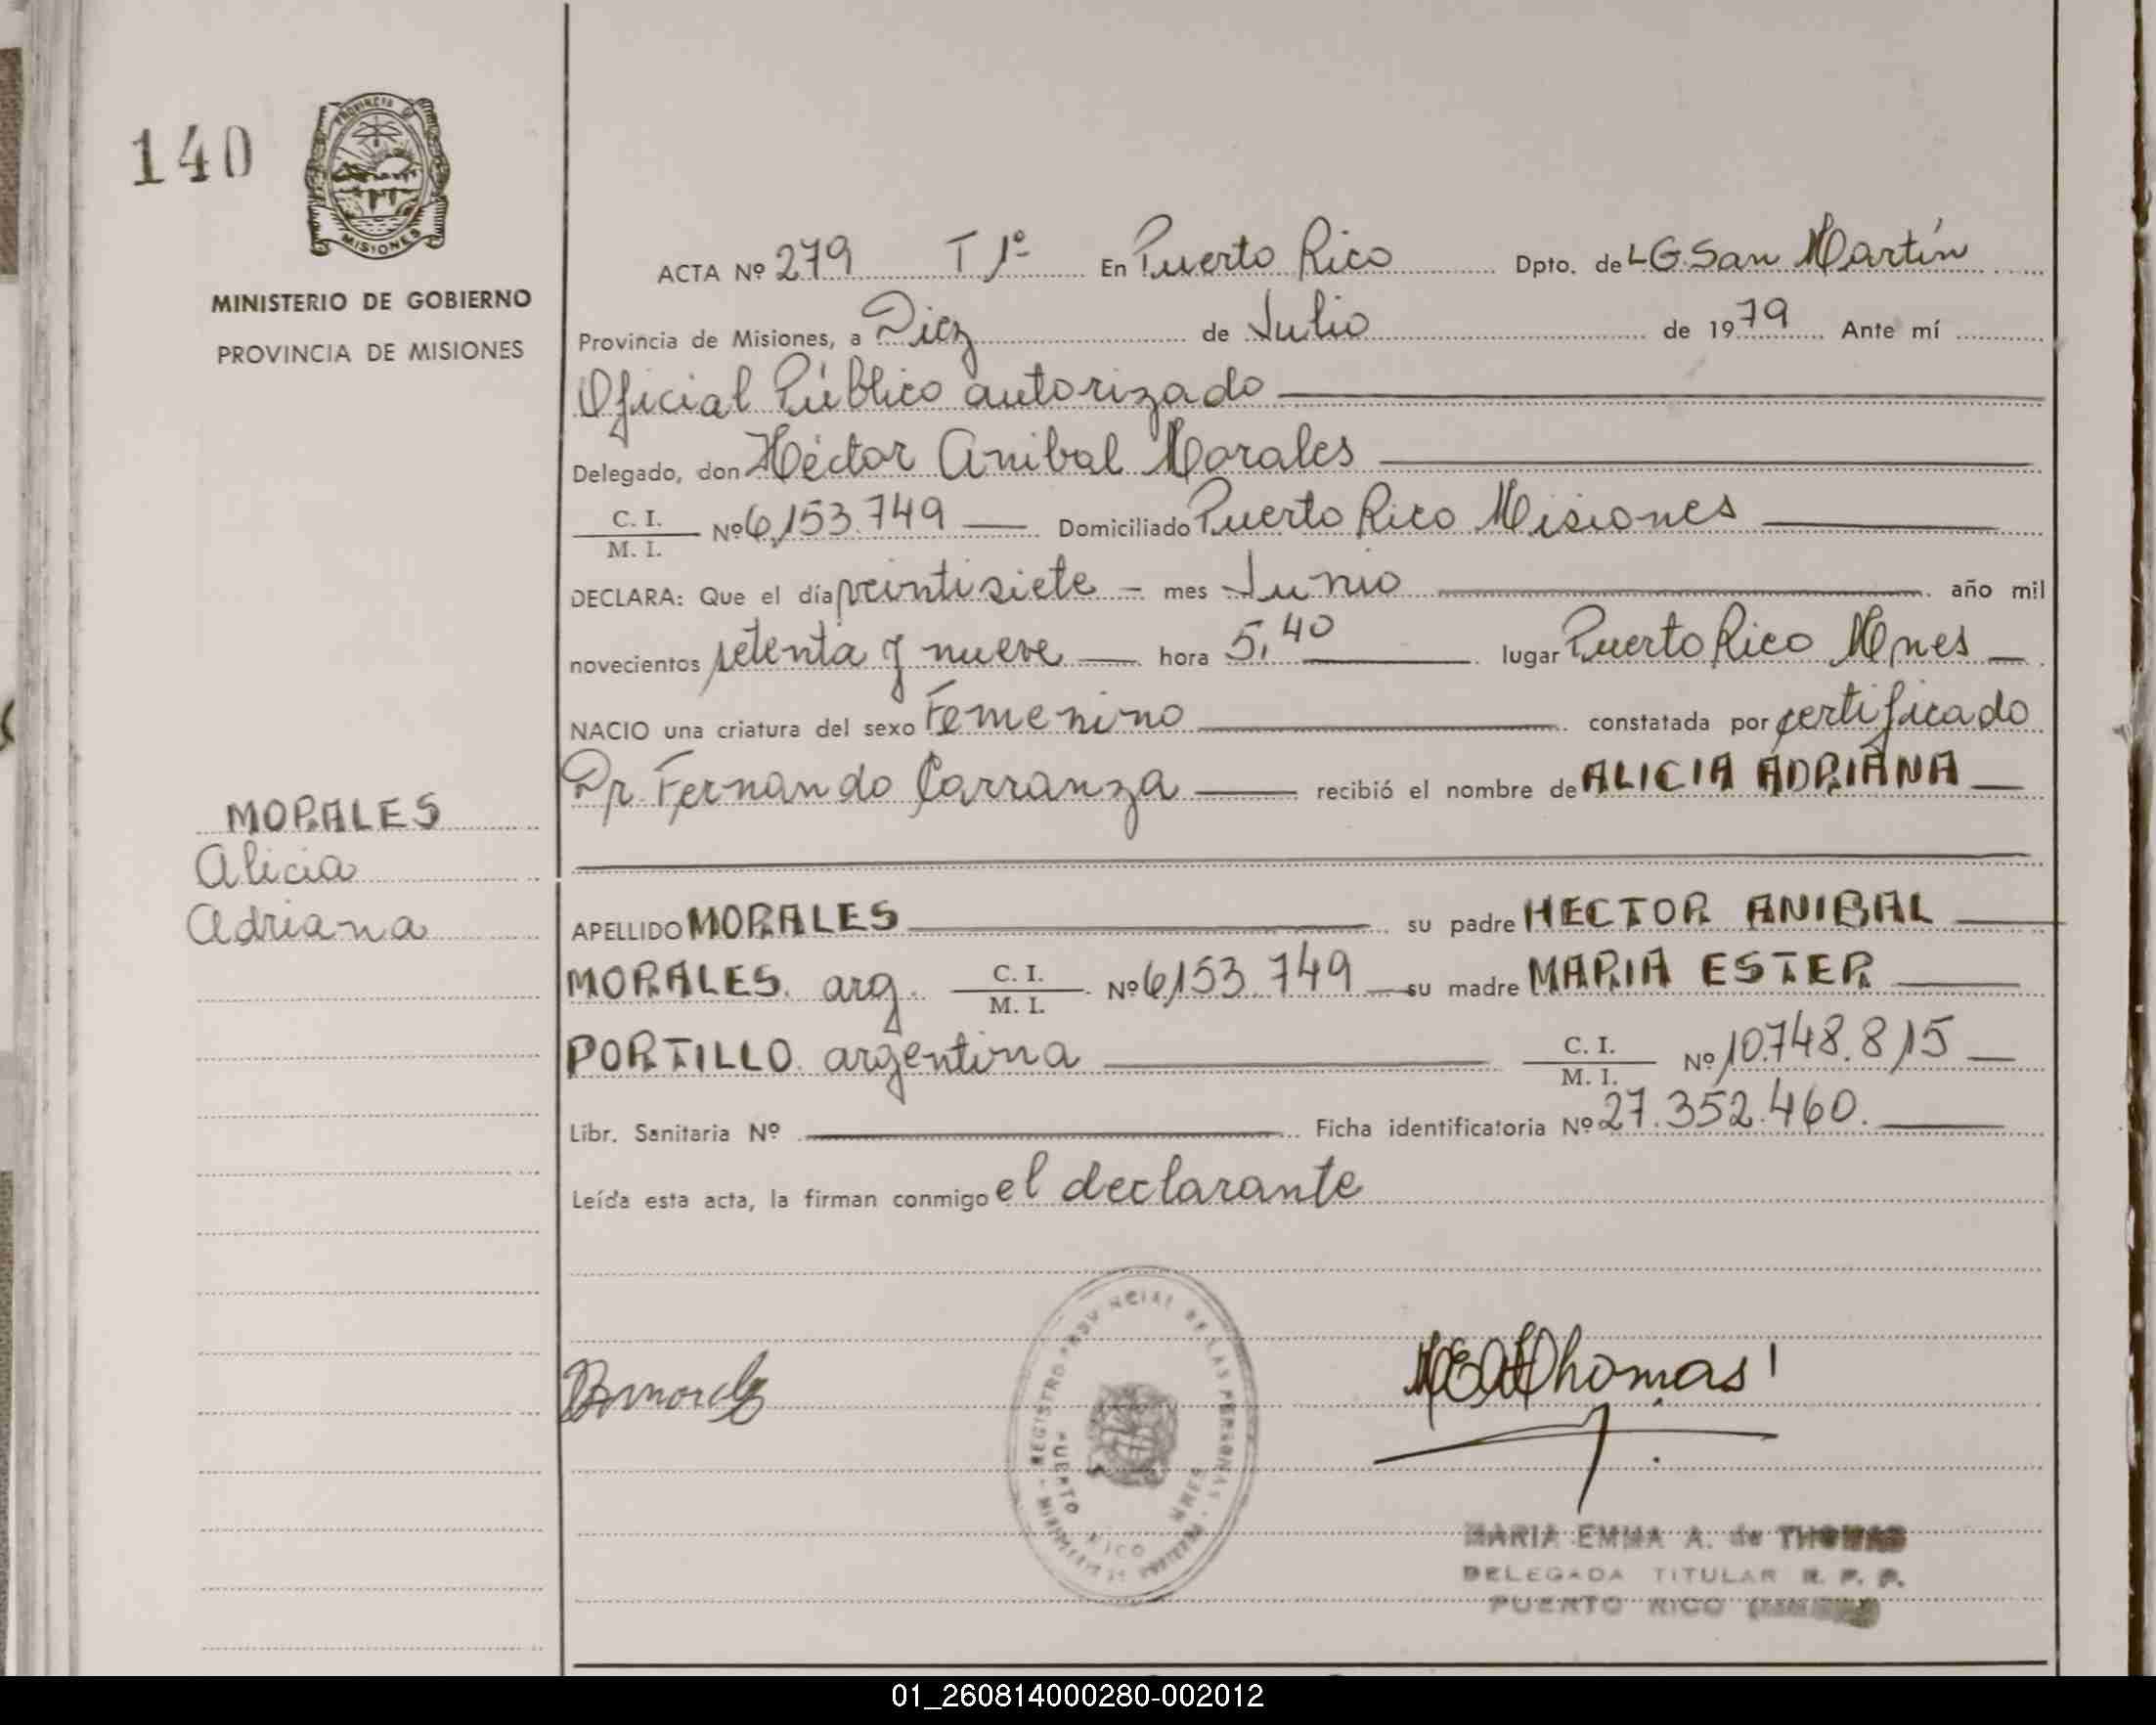 140
PROVINCIA DE
MISIONES
MINISTERIO DE GOBIERNO
PROVINCIA DE MISIONES
MORALES
Alicia
Adriana
ACTA Nº 279 T 1º En Puerto Rico Dpto. de L G. San Martín
Provincia de Misiones, a Diez de Julio de 1979 Ante mí
Oficial Público autorizado
Delegado, don Héctor Anibal Morales
C. I. / M. I. Nº 6,153.749 Domiciliado Puerto Rico Misiones
DECLARA: Que el día veintisiete - mes Junio año mil
novecientos setenta y nueve hora 5,40 lugar Puerto Rico Mnes
NACIO una criatura del sexo Femenino constatada por certificado
Dr. Fernando Carranza recibió el nombre de ALICIA ADRIANA
APELLIDO MORALES su padre HECTOR ANIBAL
MORALES. arg. C. I. / M. I. Nº 6,153.749 su madre MARIA ESTER
PORTILLO. argentina C. I. / M. I. Nº 10.748.815
Libr. Sanitaria Nº Ficha identificatoria Nº 27.352.460.
Leída esta acta, la firman conmigo el declarante
REGISTRO PROVINCIAL DE LAS PERSONAS
PUERTO RICO
MNES
Thomas
MARIA EMMA A. de THOMAS
DELEGADA TITULAR R. P. P.
PUERTO RICO
01_260814000280-002012